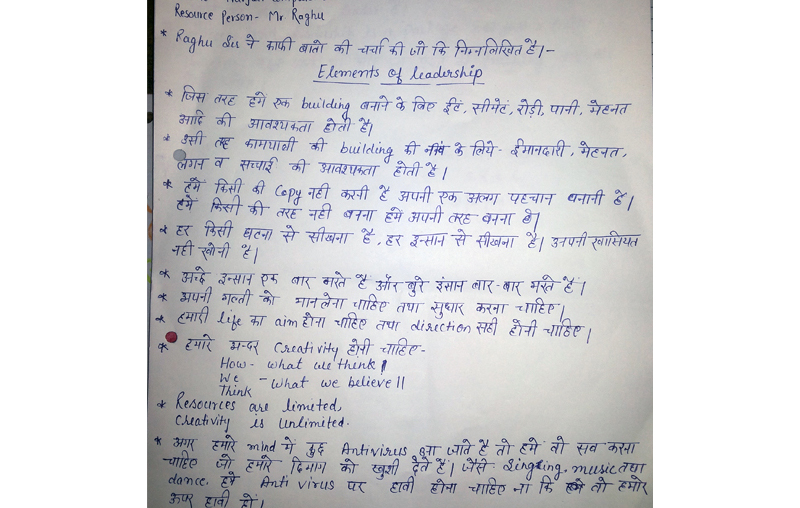 Resource Person- Mr Raghu
* Raghu Sir ने काफी बातो की चर्चा की जो कि निम्नलिखित है।-
Elements of leadership
* जिस तरह हमे एक building बनाने के लिए ईंट, सीमेंट, रोड़ी, पानी, मेहनत
आदि की आवश्यकता होती है।
* उसी तरह कामयाबी की building की नींव के लिये- ईमानदारी, मेहनत,
लगन व सच्चाई की आवश्यकता होती है।
* हमें किसी की Copy नही करनी है अपनी एक अलग पहचान बनानी है।
हमें किसी की तरह नही बनना हमें अपनी तरह बनना है।
* हर किसी घटना से सीखना है, हर इन्सान से सीखना है। अपनी खासियत
नही खोनी है।
* अच्छे इन्सान एक बार मरते है और बुरे इंसान बार-बार मरते है।
* अपनी गल्ती को मान लेना चाहिए तथा सुधार करना चाहिए।
* हमारी life का aim होना चाहिए तथा direction सही होनी चाहिए।
* हमारे अन्दर Creativity होनी चाहिए-
How - what we think।
We
Think - What we believe॥
* Resources are limited,
Creativity is Unlimited.
* अगर हमारे mind में कुछ Antivirus आ जाते है तो हमे वो सब करना
चाहिए जो हमारे दिमाग को खुशी देते है। जैसे- Singing, music तथा
dance. हमे Anti virus पर हावी होना चाहिए ना कि वो हमारे
ऊपर हावी हों।